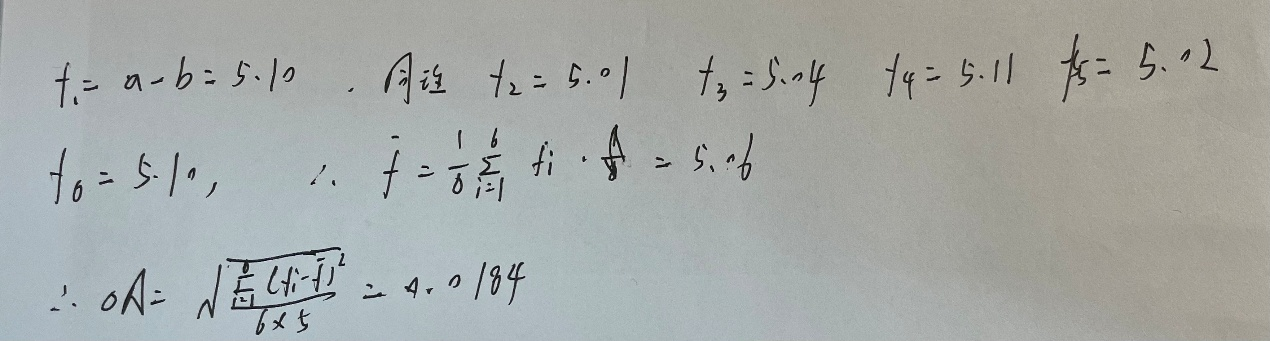 f₁ = a - b = 5.10 . 同理 f₂ = 5.01 f₃ = 5.04 f₄ = 5.11 f₅ = 5.02
f₆ = 5.10, ∴ f̄ = 1/6 Σᵢ₌₁⁶ fᵢ · = 5.06
∴ σA = √(Σᵢ₌₁⁶ (fᵢ - f̄)² / 6×5) = 0.0184